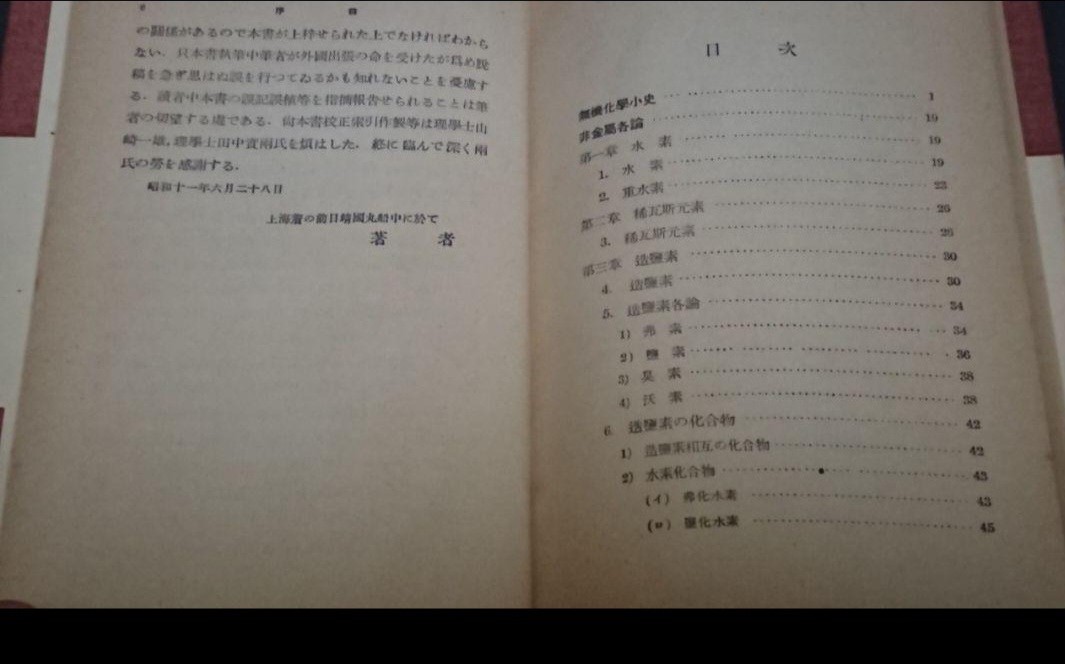 序
の關係があるので本書が上梓せられた上でなければわから
ない．只本書執筆中筆者が外國出張の命を受けたが爲め脫
稿を急ぎ思はぬ誤を行つてゐるかも知れないことを憂慮す
る．讀者中本書の誤記誤植等を指摘報告せられることは筆
者の切望する處である．尙本書校正索引作製等は理學士山
崎一雄，理學士田中實兩氏を煩はした．終に臨んで深く兩
氏の勞を感謝する．
昭和十一年六月二十八日
上海着の前日靖國丸船中に於て
著 者
目 次
無機化學小史 1
非金屬各論 19
第一章 水 素 19
1. 水 素 19
2. 重水素 23
第二章 稀瓦斯元素 26
3. 稀瓦斯元素 26
第三章 造鹽素 30
4. 造鹽素 30
5. 造鹽素各論 34
1) 弗 素 34
2) 鹽 素 36
3) 臭 素 38
4) 沃 素 38
6. 造鹽素の化合物 42
1) 造鹽素相互の化合物 42
2) 水素化合物 43
(イ) 弗化水素 43
(ロ) 鹽化水素 45